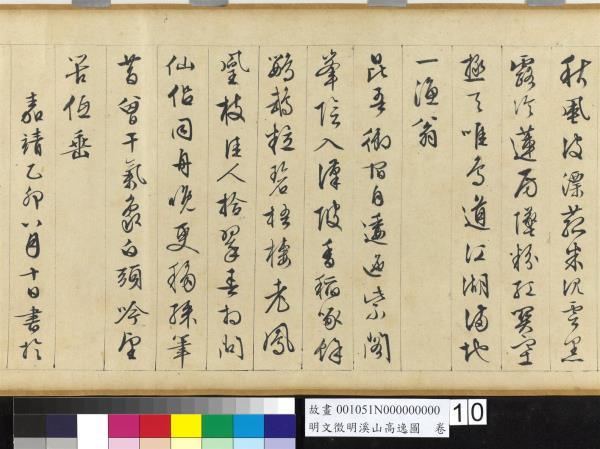 秋風波漂菰米沉雲黑
露冷蓮房墜粉紅關塞
極天唯鳥道江湖滿地
一漁翁
昆吾御宿自逶迤紫閣
峯陰入渼陂香稻啄餘
鸚鵡粒碧梧棲老鳳
凰枝佳人拾翠春相問
仙侶同舟晚更移綵筆
昔曾干氣象白頭吟望
苦低垂
嘉靖乙卯八月十日書於
故畫 001051N000000000
明文徵明溪山高逸圖 卷
10